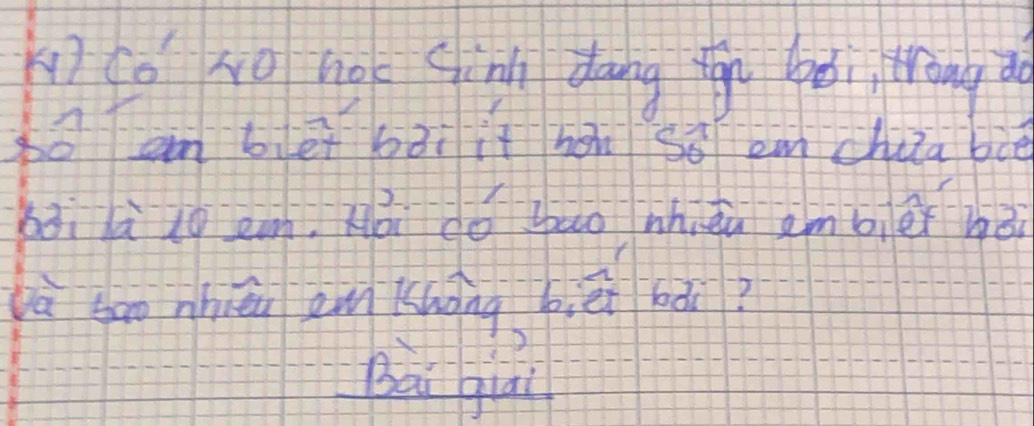 4) Có 40 học Sinh đang tập bơi, trong đó
số em biết bơi ít hơn số em chưa biế
bơi là 10 em. Hỏi có bao nhiêu em biết bơi
và bao nhiêu em không biết bơi?
Bài giải